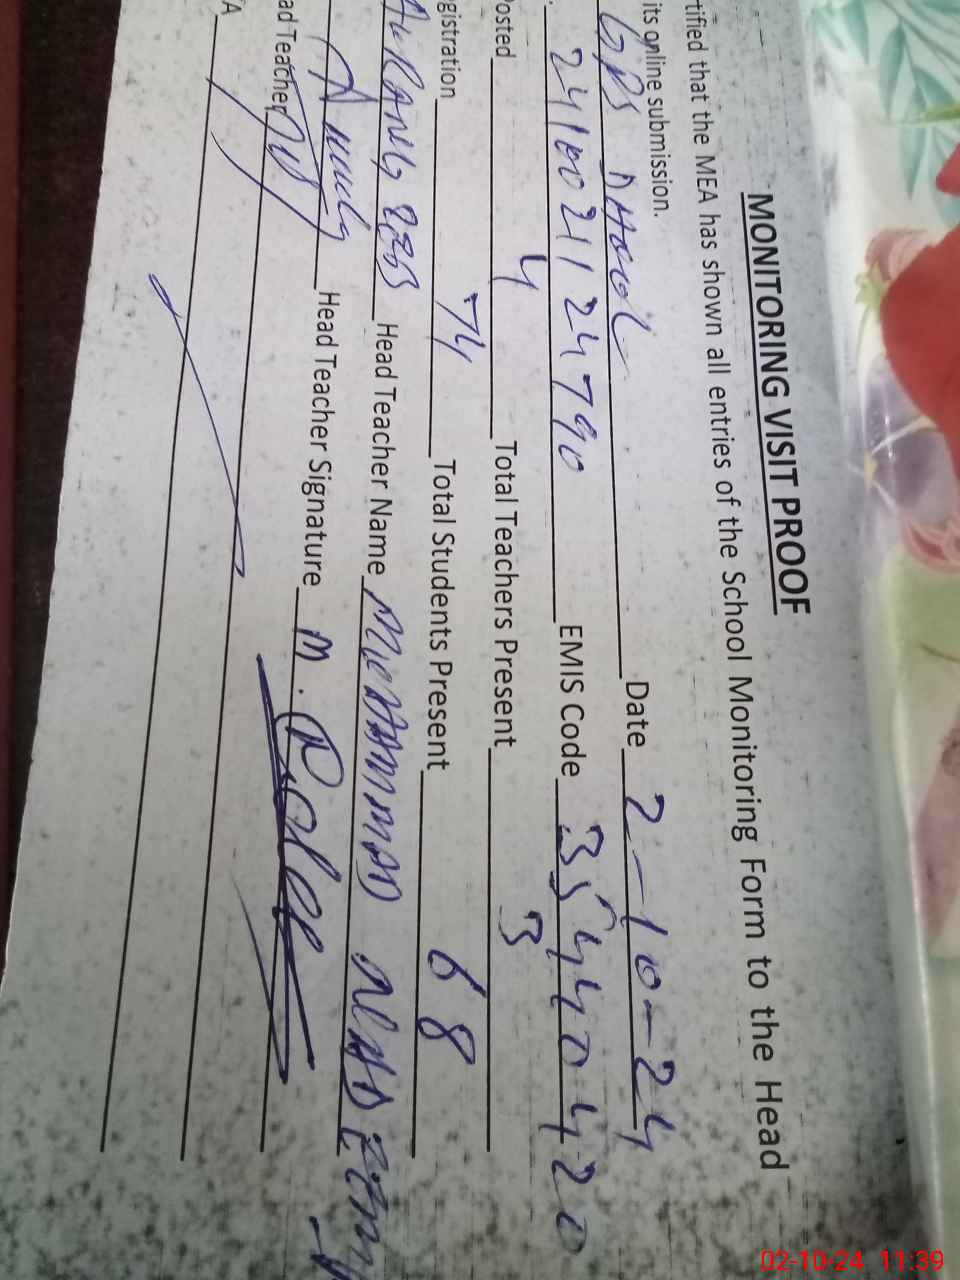 MONITORING VISIT PROOF
tified that the MEA has shown all entries of the School Monitoring Form to the Head
its online submission.
GPS DHOOL Date 2-10-24
2410021124790 EMIS Code 35440420
Posted 4 Total Teachers Present 3
gistration 74 Total Students Present 68
Head Teacher Name MUHAMMAD
Head Teacher Signature M.
ad Teacher
A
02-10-24 11:39